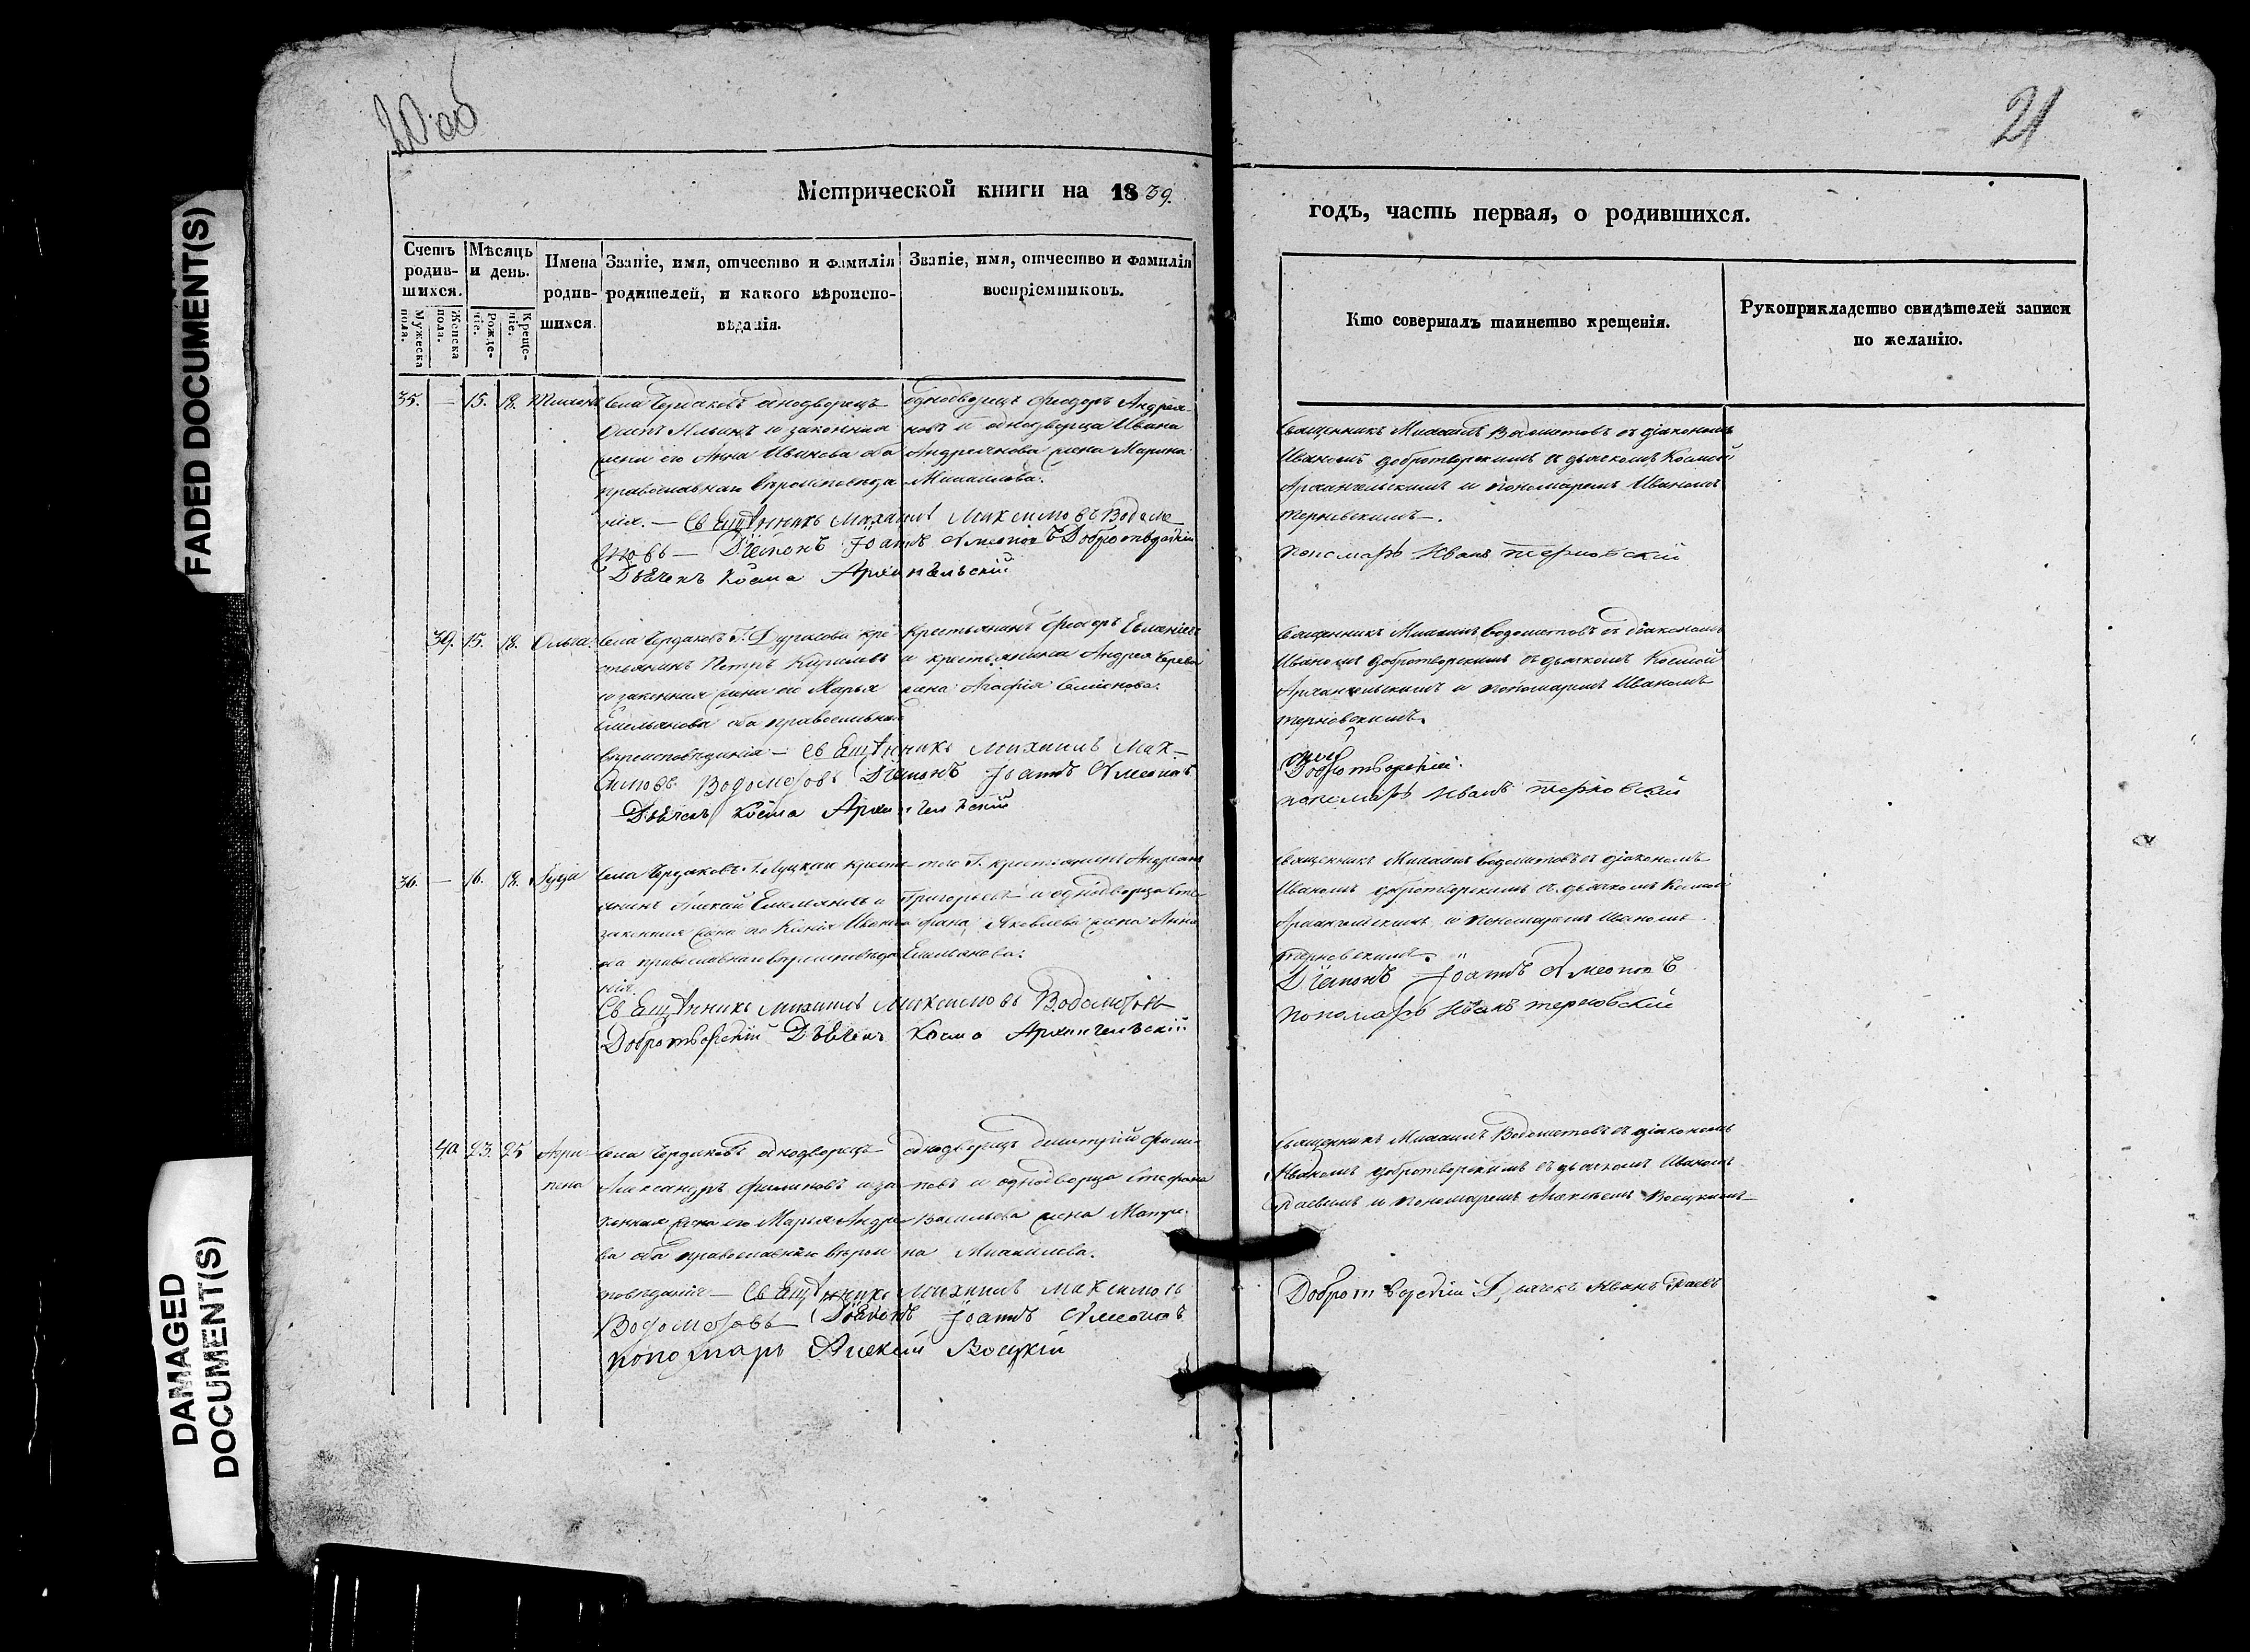 20 об
21
Метрической книги на 1839.
годъ, часть первая, о родившихся.
Счетъ родив-шихся.
Мужеска пола.
Женска пола.
Мѣсяцъ и день.
Рожде-ніе.
Креще-ніе.
Имена родив-шихся.
Званіе, имя, отчество и фамилія родителей, и какого вѣроиспо-вѣданія.
Званіе, имя, отчество и фамилія воспріемниковъ.
Кто совершалъ таинство крещенія.
Рукоприкладство свидѣтелей записи по желанію.
35. — 15. 18. Тихонъ
Села Чердаковъ однодворецъ
Ильинъ и законная
жена его Анна Иванова оба
православнаго вѣроисповѣда
нія. — Священникъ Михаилъ Максимовъ Водоме
товъ — Діаконъ Іоаннъ Добротворскій
Дьячекъ Косма Архангельскій
однодворецъ Феодоръ Андрея-
новъ и однодворца Ивана
Андреянова жена Марина
Михаилова.
Священникъ Михаилъ Водометовъ съ діакономъ
Иваномъ Добротворскимъ съ дьячкомъ Космой
Архангельскимъ и пономаремъ Иваномъ
Терновскимъ.
пономарь Иванъ Терновскій
39. 15. 18. Ольга.
Села Чердаковъ Г. Дурасова кре
стьянинъ Петръ Кириловъ
и законная жена его Марья
Емельянова оба православнаго
вѣроисповѣданія — Священникъ Михаилъ Мак-
симовъ Водометовъ Діаконъ Іоаннъ
Дьячекъ Косма Архангельскій
Крестьянинъ Феодоръ
и крестьянина Андрея
жена Агафія Семіонова.
Священникъ Михаилъ Водометовъ съ діакономъ
Иваномъ Добротворскимъ съ дьячкомъ Космой
Архангельскимъ и пономаремъ Иваномъ
Терновскимъ.
Добротворскій.
пономарь Иванъ Терновскій
36. — 16. 18. Іуда
Села Чердаковъ крестья
янинъ Алексей Емельяновъ и
законная жена его Ксенія Иванова
оба православнаго вѣроисповѣда
нія.
Священникъ Михаилъ Максимовъ Водометовъ
Добротворскій Дьячекъ Косма Архангельскій
того Г. крестьянинъ Андреянъ
Григорьевъ и однодворца Сте-
фана Яковлева жена Анна
Емельянова.
Священникъ Михаилъ Водометовъ съ діакономъ
Иваномъ Добротворскимъ съ дьячкомъ Космой
Архангельскимъ и пономаремъ Иваномъ
Терновскимъ.
Діаконъ Іоаннъ
Пономарь Иванъ Терновскій
40 23. 25 Агри-
пена
Села Чердаковъ однодворецъ
Александръ Филиповъ и за
конная жена его Марья Андре
ва оба православнаго вѣроис
повѣданія — Священникъ Михаилъ Максимовъ
Водометовъ Діаконъ Іоаннъ
Пономарь Алексій Воецкій
однодворецъ Димитрій Фили-
повъ и однодворца Стефана
Васильева жена Матре-
на Михаилова.
Священникъ Михаилъ Водометовъ съ діакономъ
Иваномъ Добротворскимъ съ дьячкомъ Иваномъ
Раевымъ и пономаремъ Алексѣемъ Воецкимъ
Добротворскій Дьячекъ Иванъ Раевъ
FADED DOCUMENT(S)
DAMAGED
DOCUMENT(S)